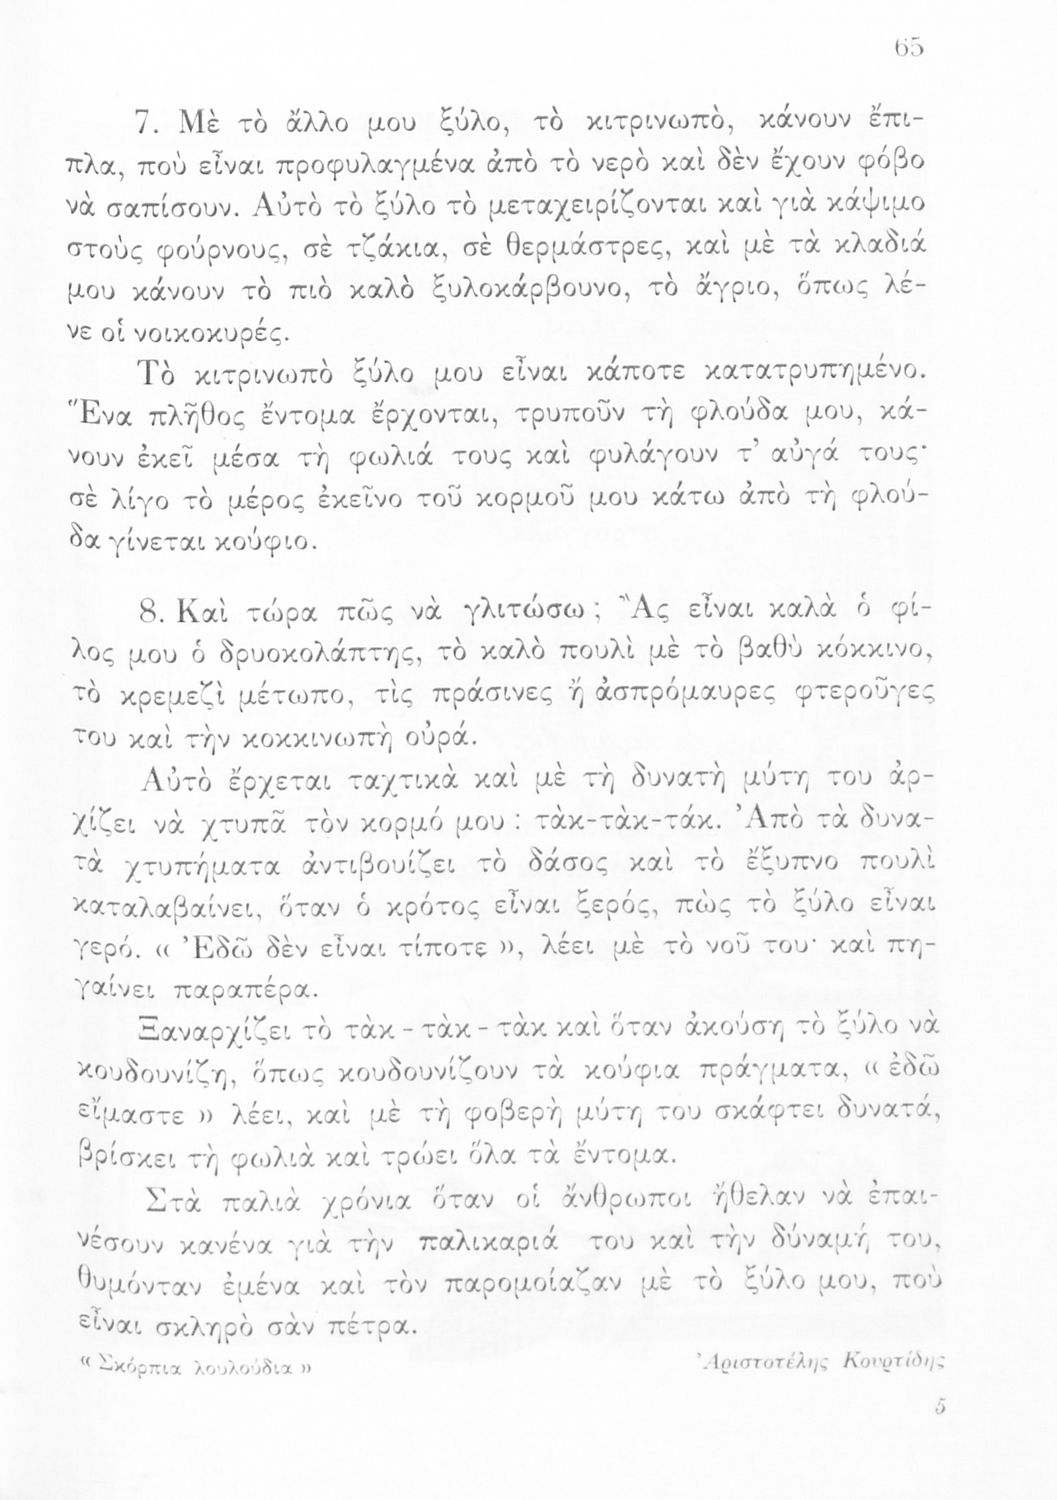 65
7. Μὲ τὸ ἄλλο μου ξύλο, τὸ κιτρινωπὸ, κάνουν ἔπι-
πλα, ποὺ εἶναι προφυλαγμένα ἀπὸ τὸ νερὸ καὶ δὲν ἔχουν φόβο
νὰ σαπίσουν. Αὐτὸ τὸ ξύλο τὸ μεταχειρίζονται καὶ γιὰ κάψιμο
στοὺς φούρνους, σὲ τζάκια, σὲ θερμάστρες, καὶ μὲ τὰ κλαδιά
μου κάνουν τὸ πιὸ καλὸ ξυλοκάρβουνο, τὸ ἄγριο, ὅπως λέ-
νε οἱ νοικοκυρές.
Τὸ κιτρινωπὸ ξύλο μου εἶναι κάποτε κατατρυπημένο.
Ἕνα πλῆθος ἔντομα ἔρχονται, τρυποῦν τὴ φλούδα μου, κά-
νουν ἐκεῖ μέσα τὴ φωλιά τους καὶ φυλάγουν τ’ αὐγά τους·
σὲ λίγο τὸ μέρος ἐκεῖνο τοῦ κορμοῦ μου κάτω ἀπὸ τὴ φλού-
δα γίνεται κούφιο.
8. Καὶ τώρα πῶς νὰ γλιτώσω ; Ἂς εἶναι καλὰ ὁ φί-
λος μου ὁ δρυοκολάπτης, τὸ καλὸ πουλὶ μὲ τὸ βαθὺ κόκκινο,
τὸ κρεμεζὶ μέτωπο, τὶς πράσινες ἢ ἀσπρόμαυρες φτεροῦγες
του καὶ τὴν κοκκινωπὴ οὐρά.
Αὐτὸ ἔρχεται ταχτικὰ καὶ μὲ τὴ δυνατὴ μύτη του ἀρ-
χίζει νὰ χτυπᾶ τὸν κορμό μου : τὰκ-τὰκ-τάκ. Ἀπὸ τὰ δυνα-
τὰ χτυπήματα ἀντιβουίζει τὸ δάσος καὶ τὸ ἔξυπνο πουλὶ
καταλαβαίνει, ὅταν ὁ κρότος εἶναι ξερός, πὼς τὸ ξύλο εἶναι
γερό. « Ἐδῶ δὲν εἶναι τίποτε », λέει μὲ τὸ νοῦ του· καὶ πη-
γαίνει παραπέρα.
Ξαναρχίζει τὸ τὰκ - τὰκ - τὰκ καὶ ὅταν ἀκούση τὸ ξύλο νὰ
κουδουνίζη, ὅπως κουδουνίζουν τὰ κούφια πράγματα, « ἐδῶ
εἴμαστε » λέει, καὶ μὲ τὴ φοβερὴ μύτη του σκάφτει δυνατά,
βρίσκει τὴ φωλιὰ καὶ τρώει ὅλα τὰ ἔντομα.
Στὰ παλιὰ χρόνια ὅταν οἱ ἄνθρωποι ἤθελαν νὰ ἐπαι-
νέσουν κανένα γιὰ τὴν παλικαριά του καὶ τὴν δύναμή του,
θυμόνταν ἐμένα καὶ τὸν παρομοίαζαν μὲ τὸ ξύλο μου, ποὺ
εἶναι σκληρὸ σὰν πέτρα.
« Σκόρπια λουλούδια » Ἀριστοτέλης Κουρτίδης
5